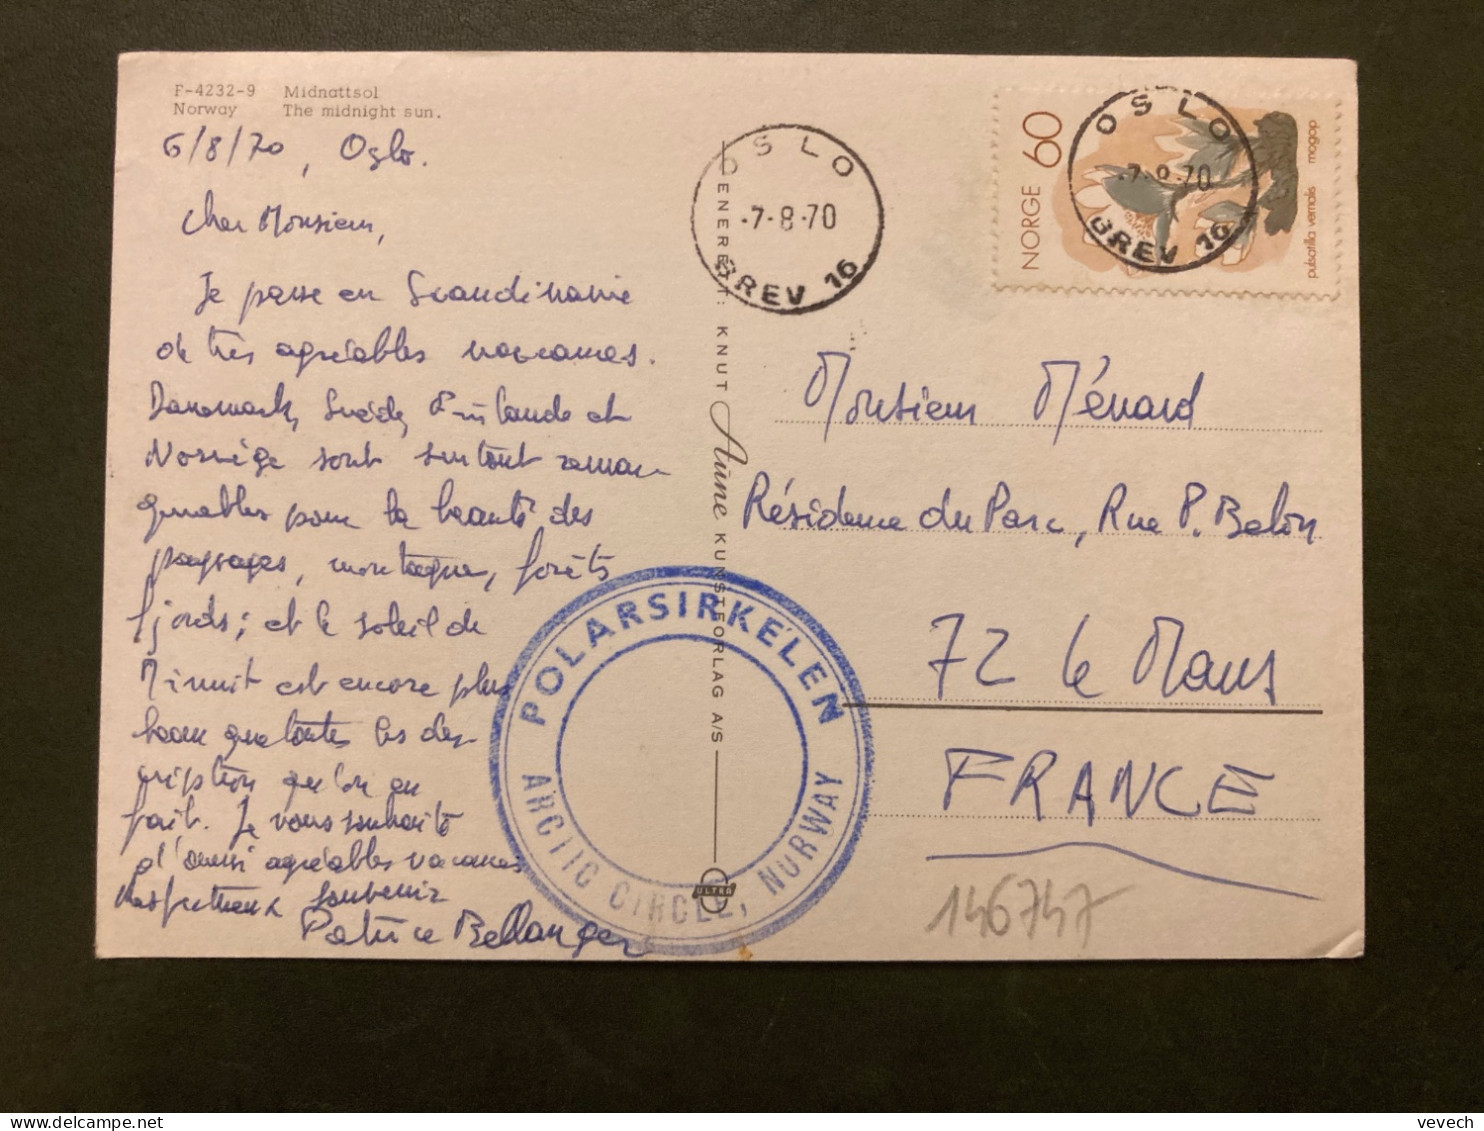 F-4232-9 Midnattsol
Norway The midnight sun.
6/8/70, Oslo.
Cher Monsieur,
Je passe en Scandinavie
de très agréables vacances.
Danemark, Suède, Finlande et
Norvège sont surtout remar-
quables pour la beauté des
paysages, montagne, forêts
fjords; et le soleil de
Minuit est encore plus
beau que toutes les des-
cription qu'on en
fait. Je vous souhaite
d'aussi agréables vacances
Respectueux souvenir
Patrice Bellanger
ENERETT: KNUT Aune KUNSTFORLAG A/S
ULTRA
OSLO
-7-8-70
BREV 16
NORGE 60
pulsatilla vernalis mogop
OSLO
-7-8-70
BREV 16
Monsieur Ménard
Résidence du Parc, Rue P. Belon
72 Le Mans
FRANCE
146747
POLARSIRKELEN
ARCTIC CIRCLE, NORWAY
vevech
delcampe.net